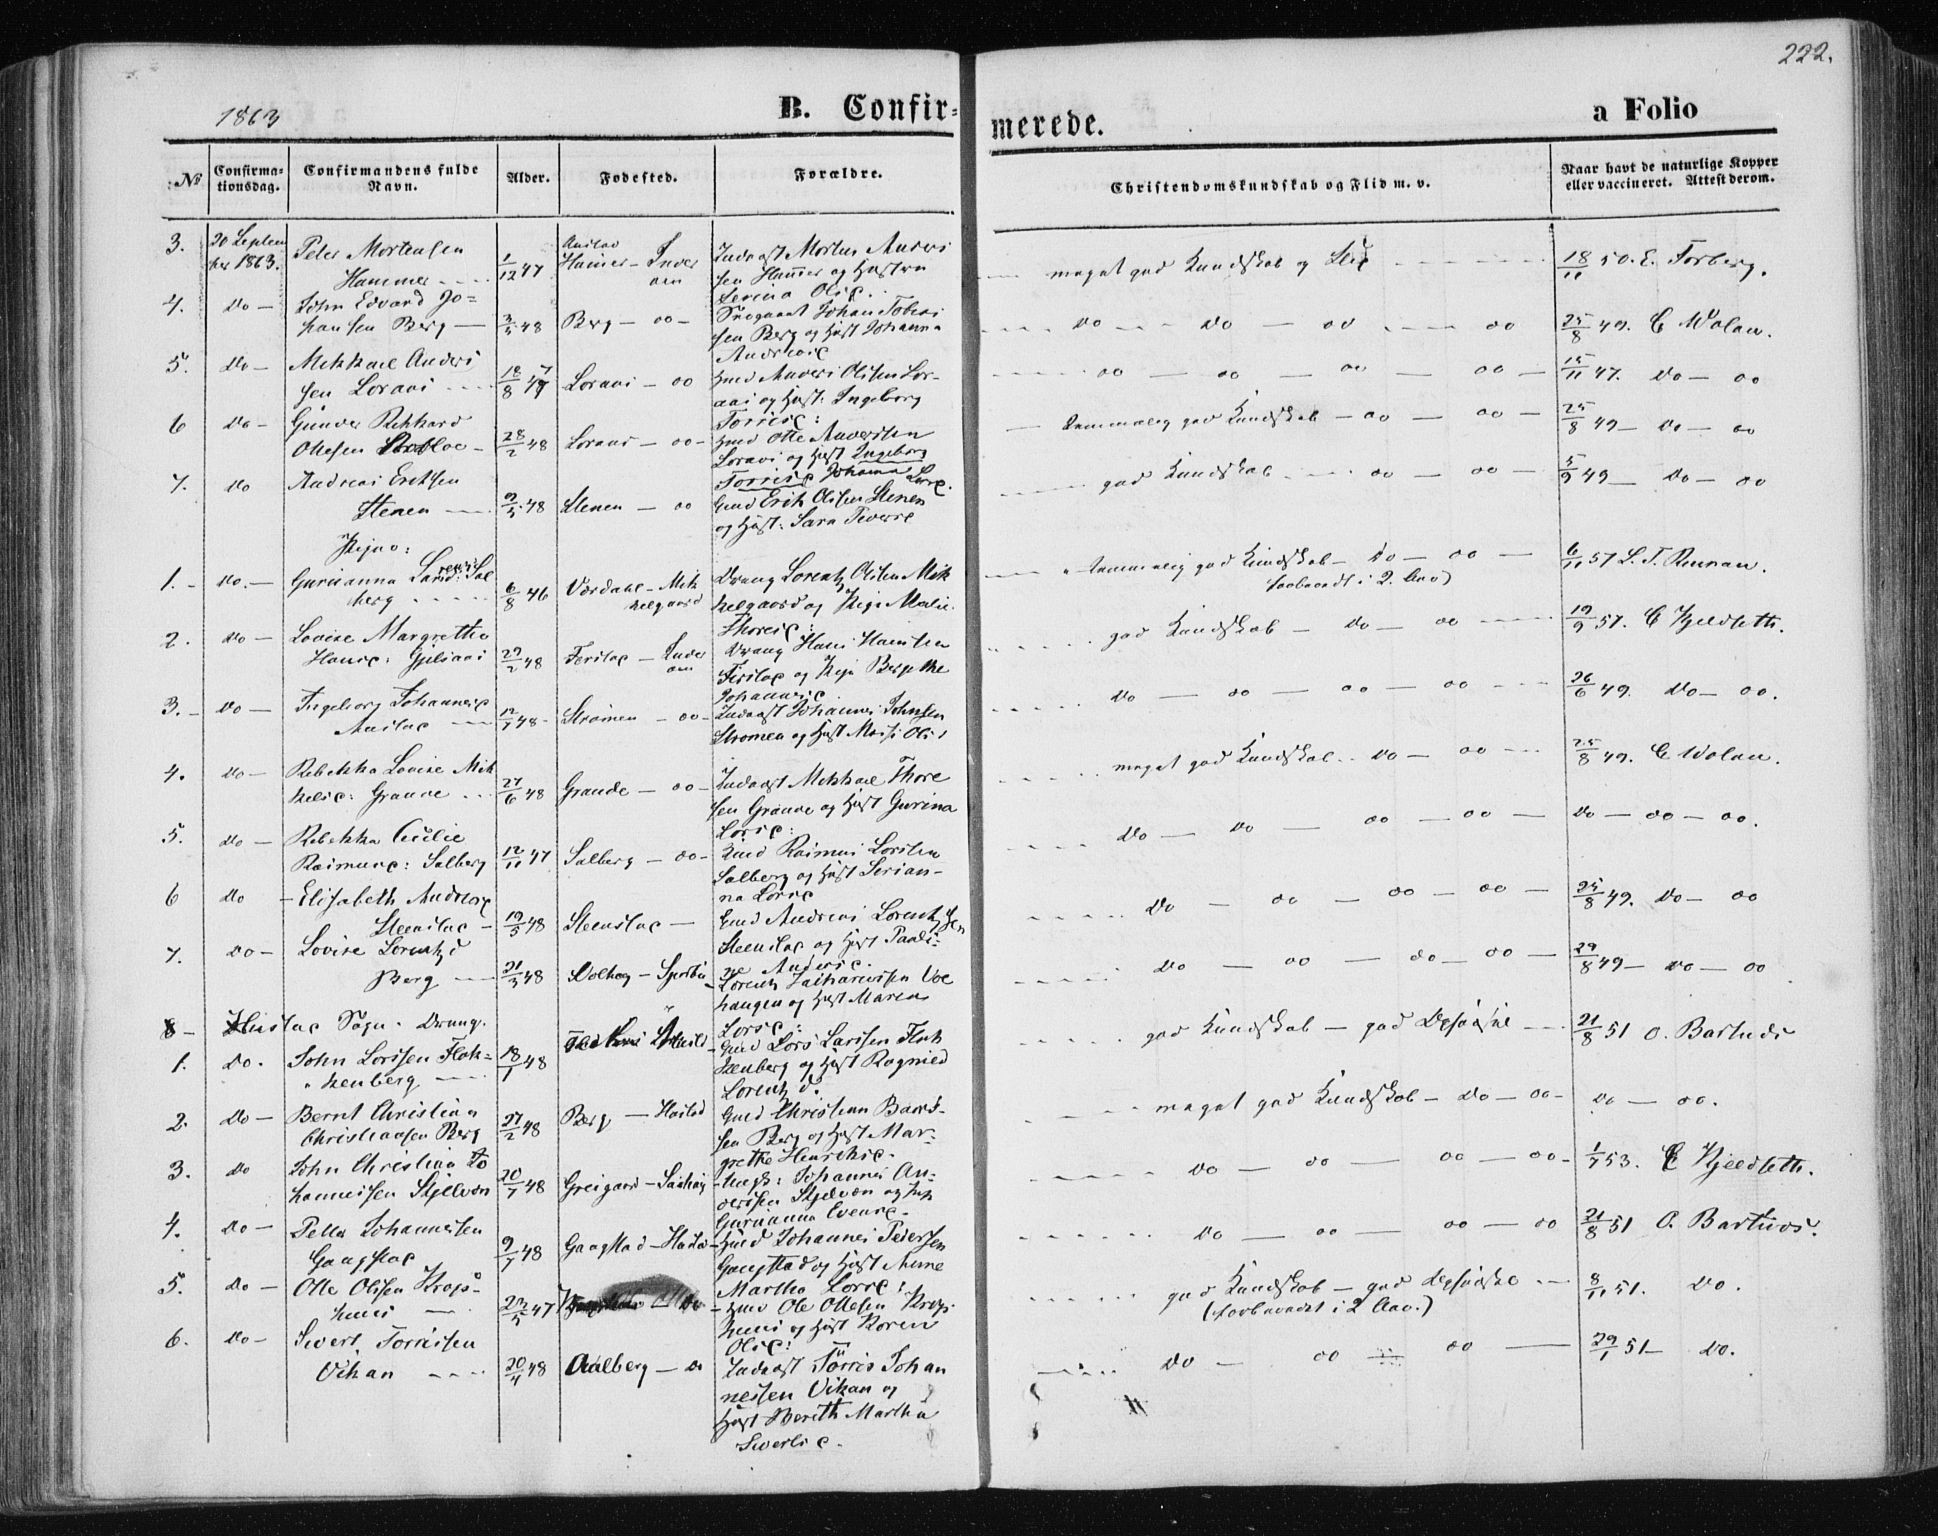 222.
1863
B. Confir=
merede.
a Folio
No
Confirma-
tionsdag.
Confirmandens fulde
Navn.
Alder.
Fødested.
Forældre.
Christendomskundskab og Flid m. v.
Naar havt de naturlige Kopper
eller vaccineret. Attest derom.
3. 20 Septem
ber 1863.
Peter Mortensen
Hammer
1/12 47
Hamer - Inder
øen
Inderst Morten Anders
sen Hamer og Hustru
meget god Kundskab og Flid
18/11 50. E. Forberg.
4. do -
John Edvard Jo=
hansen Berg
3/5 48
Berg - do -
Johan Tobias
sen Berg og Hust Johanna
do - do - do - do
25/8 49. C Wolan.
5. do -
Mikkael Anders
sen
18/8 47
do
Gmd Anders Olssen
og Hust: Ingeborg
Torrisd:
do - do - do - do
15/11 47. do - do
6 do -
Gunder Rikhard
Ottesen
28/2 48
do -
Gmd Otte Anderssen
og Hust Ingeborg
Torrisd Johanna Larsd.
temmelig god Kundskab - do - do
25/8 49 - do - do
7. do
Andreas Eriksen
Stenen
9/5 48
Stenen - do
Gmd Erik Olssen Stenen
og Hust: Sara Sivertsd
god Kundskab - do - do
5/9 49 - do - do
Piger:
1. - do. -
Gurianna Lorens: Sal
berg
6/8 46
Værdalen - Mik
kelgaard
Dreng Lorentz Olssen Mik
kelgaard og Pige Malie
Thoresd:
temmelig god Kundskab - do - do
6/11 57 L. T. Rennan.
2. do -
Lovise Margrethe
Hansd: Gjilaas
29/2 48
Ferstad - Inder
øen
Dreng Hans Hansen
Ferstad og Pige Bergithe
Johannesd
god Kundskab - do - do
19/9 57. C Kjeldseth.
3. - do -
Ingeborg Johannesd
Austad
12/1 48 -
Strømen - do -
Inderst Johannes Johnsen
Strømen og Hust
do - do - do - do
26/6 49. do - do.
4. do -
Rebekka Lovise Mik
kelsd: Grande
27/6 48
Grande - do -
Inderst Mikkael Thore
sen Grande og Hust Gurina
Larsd:
meget god Kundskab - do - do
25/8 49. C Wolan.
5. do -
Rebekka Cecilie
Rasmusd: Salberg
12/11 47
Salberg - do -
Gmd Rasmus Larssen
Salberg og Hust Serian-
na Larsd
do - do - do - do - do
do - do - do.
6 do
Elisabeth Andreasd
Steenstad
19/5 48
Steenstad -
Gmd Andreas Lorentzsen
Steenstad og Hust
Andersd.
do - do - do - do
25/8 49. do - do
7. do -
Lovise Lorentzd
Berg
21/5 48
Lorentz Zachariassen
haugen og Hust Maren
Larsd:
do - do - do - do
29/8 49 - do - do
8 - Hustad Sogn. Dreng.
1. do.
John Larssen Flek=
kenberg
18/1 48
Gmd Lars Larssen Flek
kenberg og Hust Ragnild
Lorentzd.
god Kundskab - god Opførsel
21/8 51 O. Bartnæs
2. do -
Bernt Christian
Christiansen Berg
27/2 48
Berg - Hustad
Gmd Christian
sen Berg og Hust Mar-
grethe Henriksd.
meget god Kundskab - do - do -
do - do.
3. do
John Christian Jo
hannessen Stjelvæn
20/7 48
- Sakshaug
Johannes An-
derssen Stjelvæn og Hust
Gurianna Evensd.
do - do - do - do -
1/7 53. C Kjeldseth.
4. do -
Pella Johannessen
Gaugstad
9/7 48
Gaugstad - Hustad
Gmd Johannes Pedersen
Gaugstad og Hust Anne
Martha Larsd:
do - do - do - do
21/8 51 O. Bartnæs.
5. do -
Otte Olssen Krogs-
huus
27/5 47
Gmd Ole Ottesen Krogs
huus og Hust Karen
Olsd:
god Kundskab - god Opførsel
(forberedt i 2 Aar.)
8/11 51. do.
6. do -
Sivert Torrissen
Vikan
20/4 48
Aalberg - do
Inderst Torris Johan
nessen Vikan og
Hust Bereth Martha
Sivertsd.
do - do - do
29/1 51 - do.